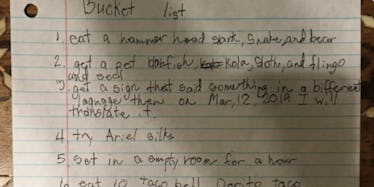 Bucket list
1. eat a hammer head shark, snake, and bear
2. get a pet dogfish, Kola, Sloth, and flingo
and seal
3. get a sign that said something in a bifferent
lagnage then on Mar, 12, 2019 I will
translate it.
4. try Ariel silks
5. set in a empty room for a hour
eat 10 taco bell Dorito taco